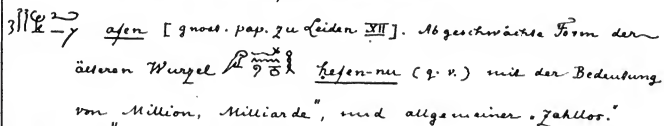 afen [gnost. pap. zu Leiden XII]. Abgeschwächte Form der
älteren Wurzel hefen-nu (q. v.) mit der Bedeutung
von „Million, Milliarde", und allgemeiner „zahllos."